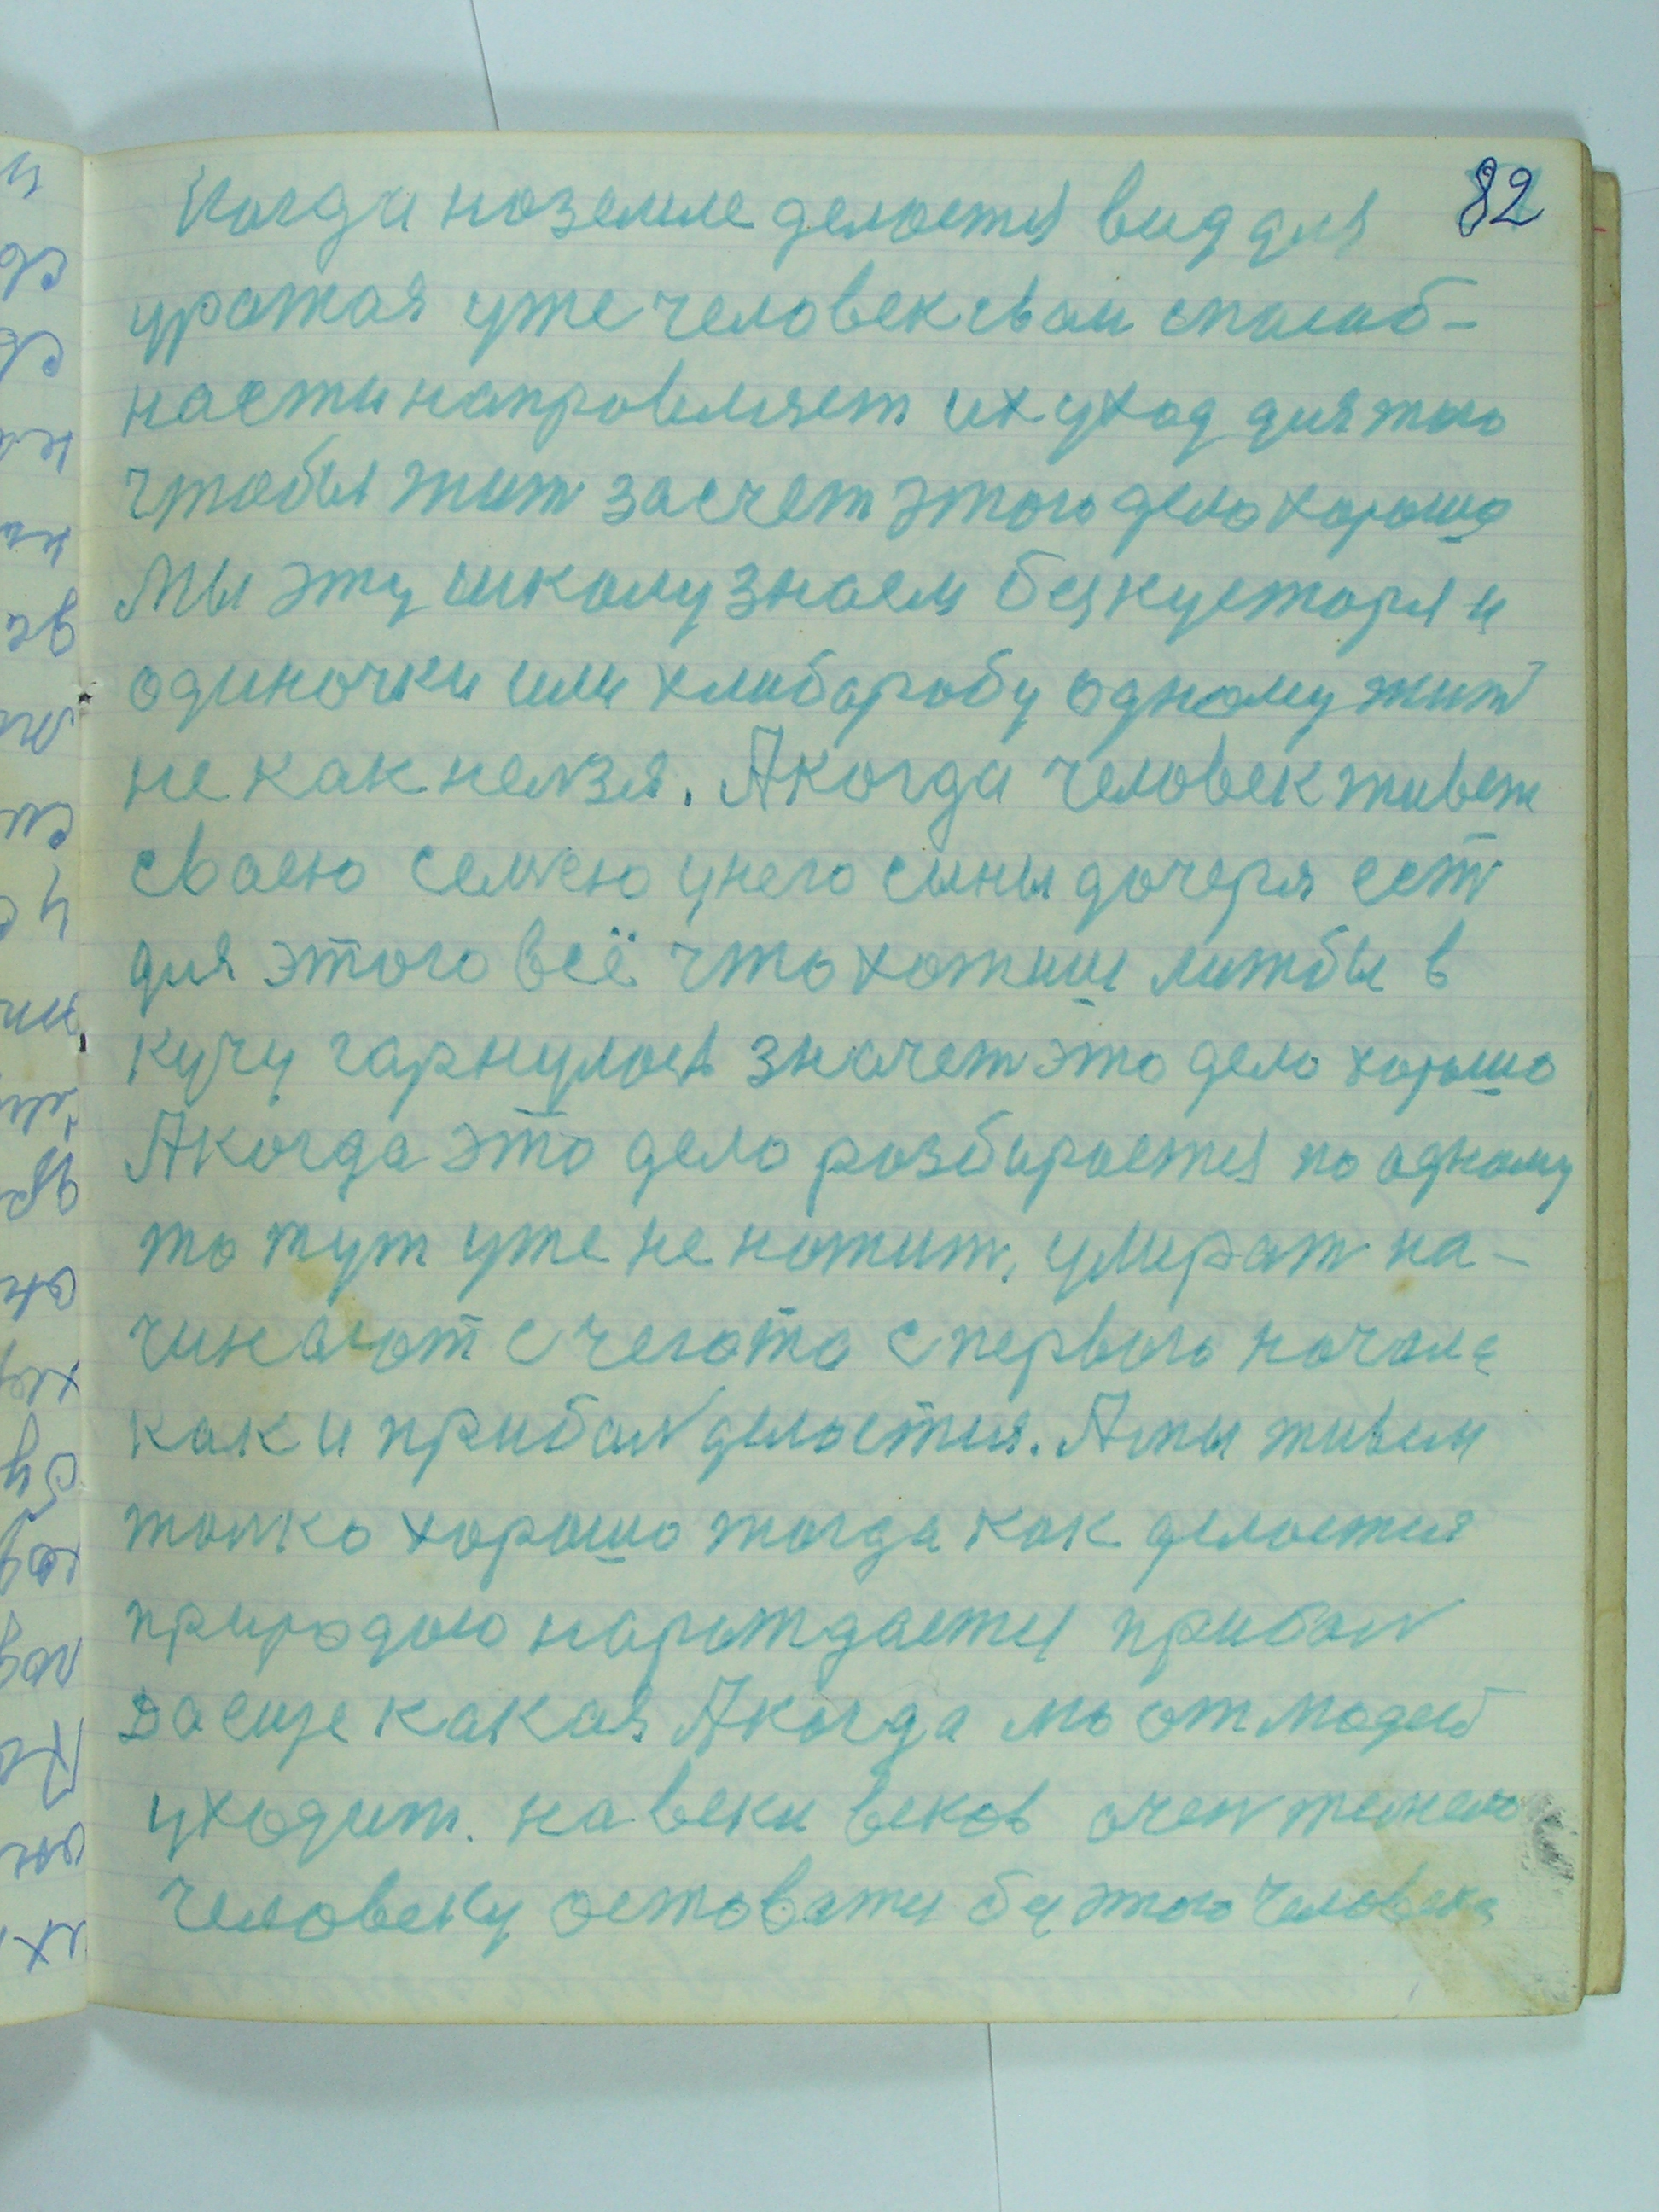 82
Когда на земле делается вид для
урожая уже человек свои способ-
насти направляет их уход для того
чтобы жит за счет этого дело хорошо
Мы эту школу знаем без кустаря и
одиночки или хлибаробу одному жит
не как нелзя. А когда человек живет
сваею семею у него сыны дочеря ест
для этого всё что хотиш лижбы в
кучу гарнулось значет это дело хорошо
А когда это дело разбирается по одному
то тут уже не нажит, умират на-
чинают с чегото с первого начала
как и прибал делается. А мы живем
толко хорошо тогда как делается
природою нарождается прибал
Да еще какая А когда мы от людей
уходим на веки веков очен тежело
человеку оставатся без этого человека